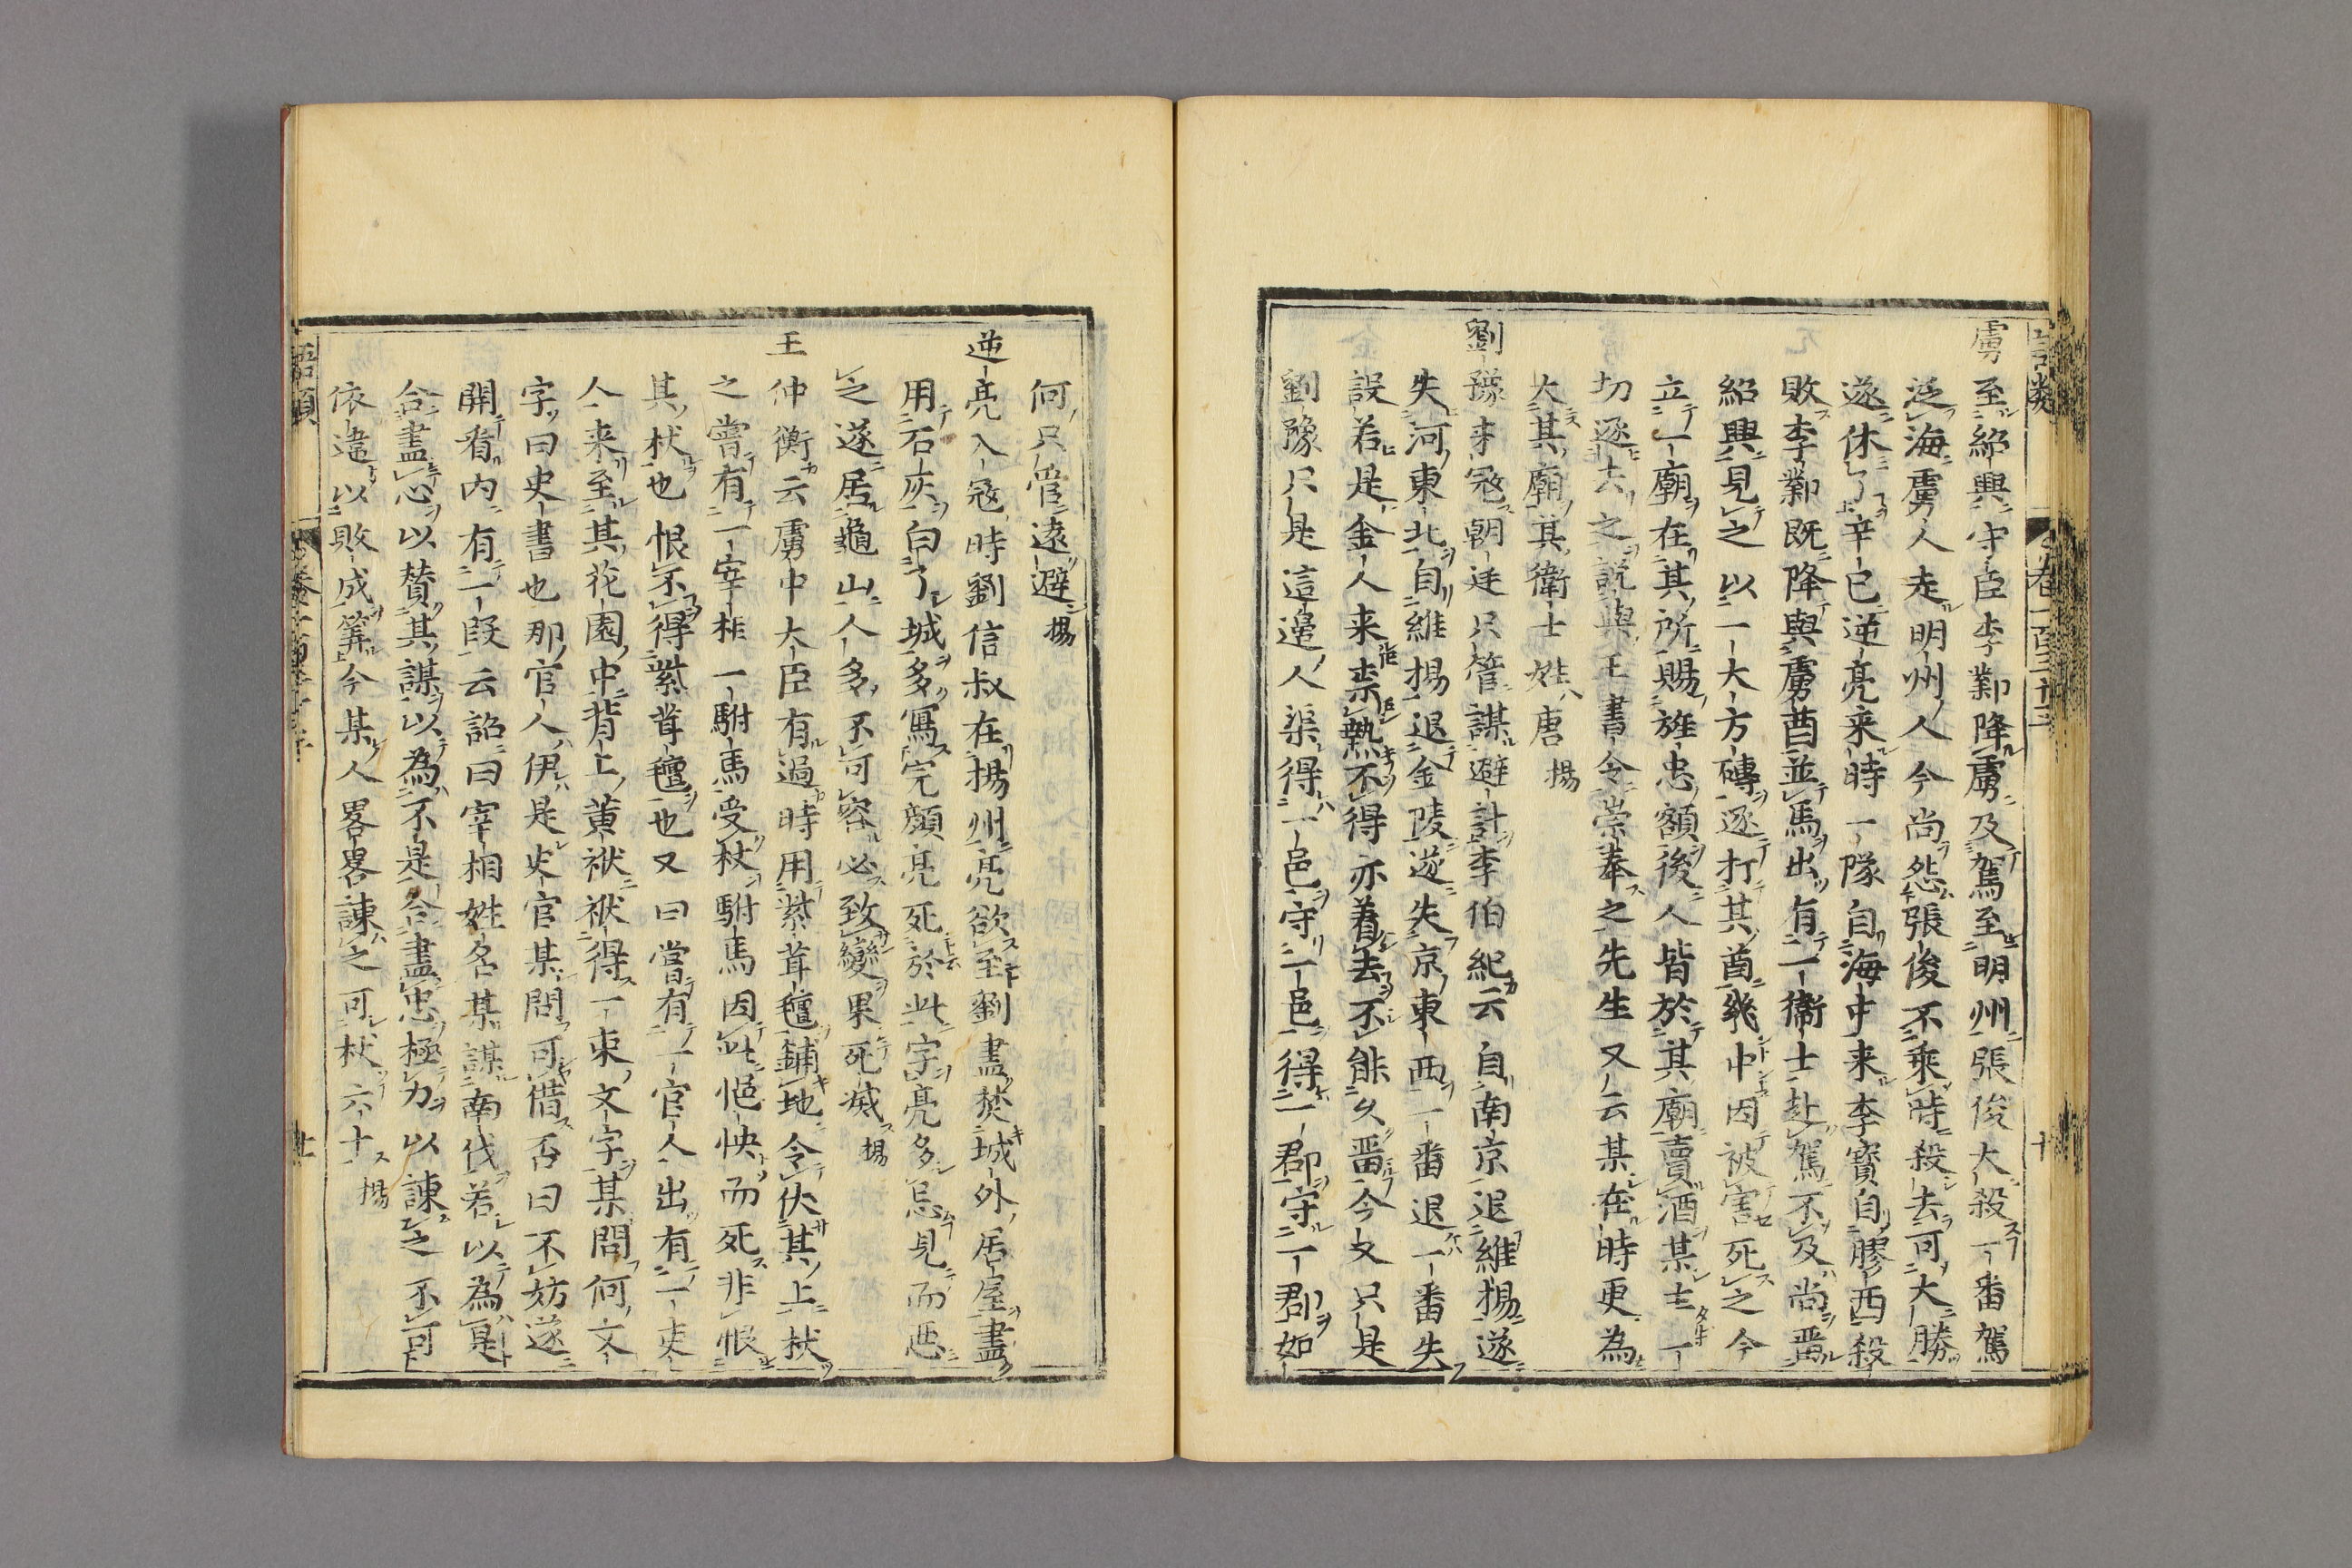 虜至紹興守臣李鄴降虜及駕至明州張俊大殺一番駕
泛海虜人走明州人今尚怨張俊不乘時殺去可大勝
遂休了辛巳逆亮来時一隊自海中来李寳自膠西殺
敗李鄴既降與虜酋並馬出有一衞士赴駕不及尚畱
紹興見之以一大方磚逐打其酋幾中因被害死之今
立一廟在其所賜旌忠額後人皆於其廟賣酒某士一
切逐去之說與王書令崇奉之先生又云某在時更為
大其廟其衞士姓唐 揚
劉豫来冦朝廷只管謀避計李伯紀云自南京退維揚遂
失河東北自維揚退金陵遂失京東西一番退一番失
設若是金人来柰熱不得亦着去不能乆畱今又只是
劉豫只是這邊人渠得一邑守一邑得一郡守一郡如
何只管遠避 揚
逆亮入冦時劉信叔在揚州亮欲至劉盡焚城外居屋盡
用石灰白了城多寫完顏亮死於此字亮多忌見而惡
之遂居龜山人多不可容必致變果死滅 揚
王仲衡云虜中大臣有過時用紫茸氊鋪地令伏其上杖
之嘗有一宰相一駙馬受杖駙馬因此悒怏而死非恨
其杖也恨不得紫茸氊也又曰嘗有一官人出有一吏
人来至其花園中背上黄袱袱得一束文字某問何文
字曰史書也那官人伊是史官某問可借否曰不妨遂
開看内有一段云詔曰宰相姓名某謀南伐若以為是
合盡心以賛其謀以為不是合盡忠極力以諫之不可
依違以敗成筭今某人畧畧諫之可杖六十 揚